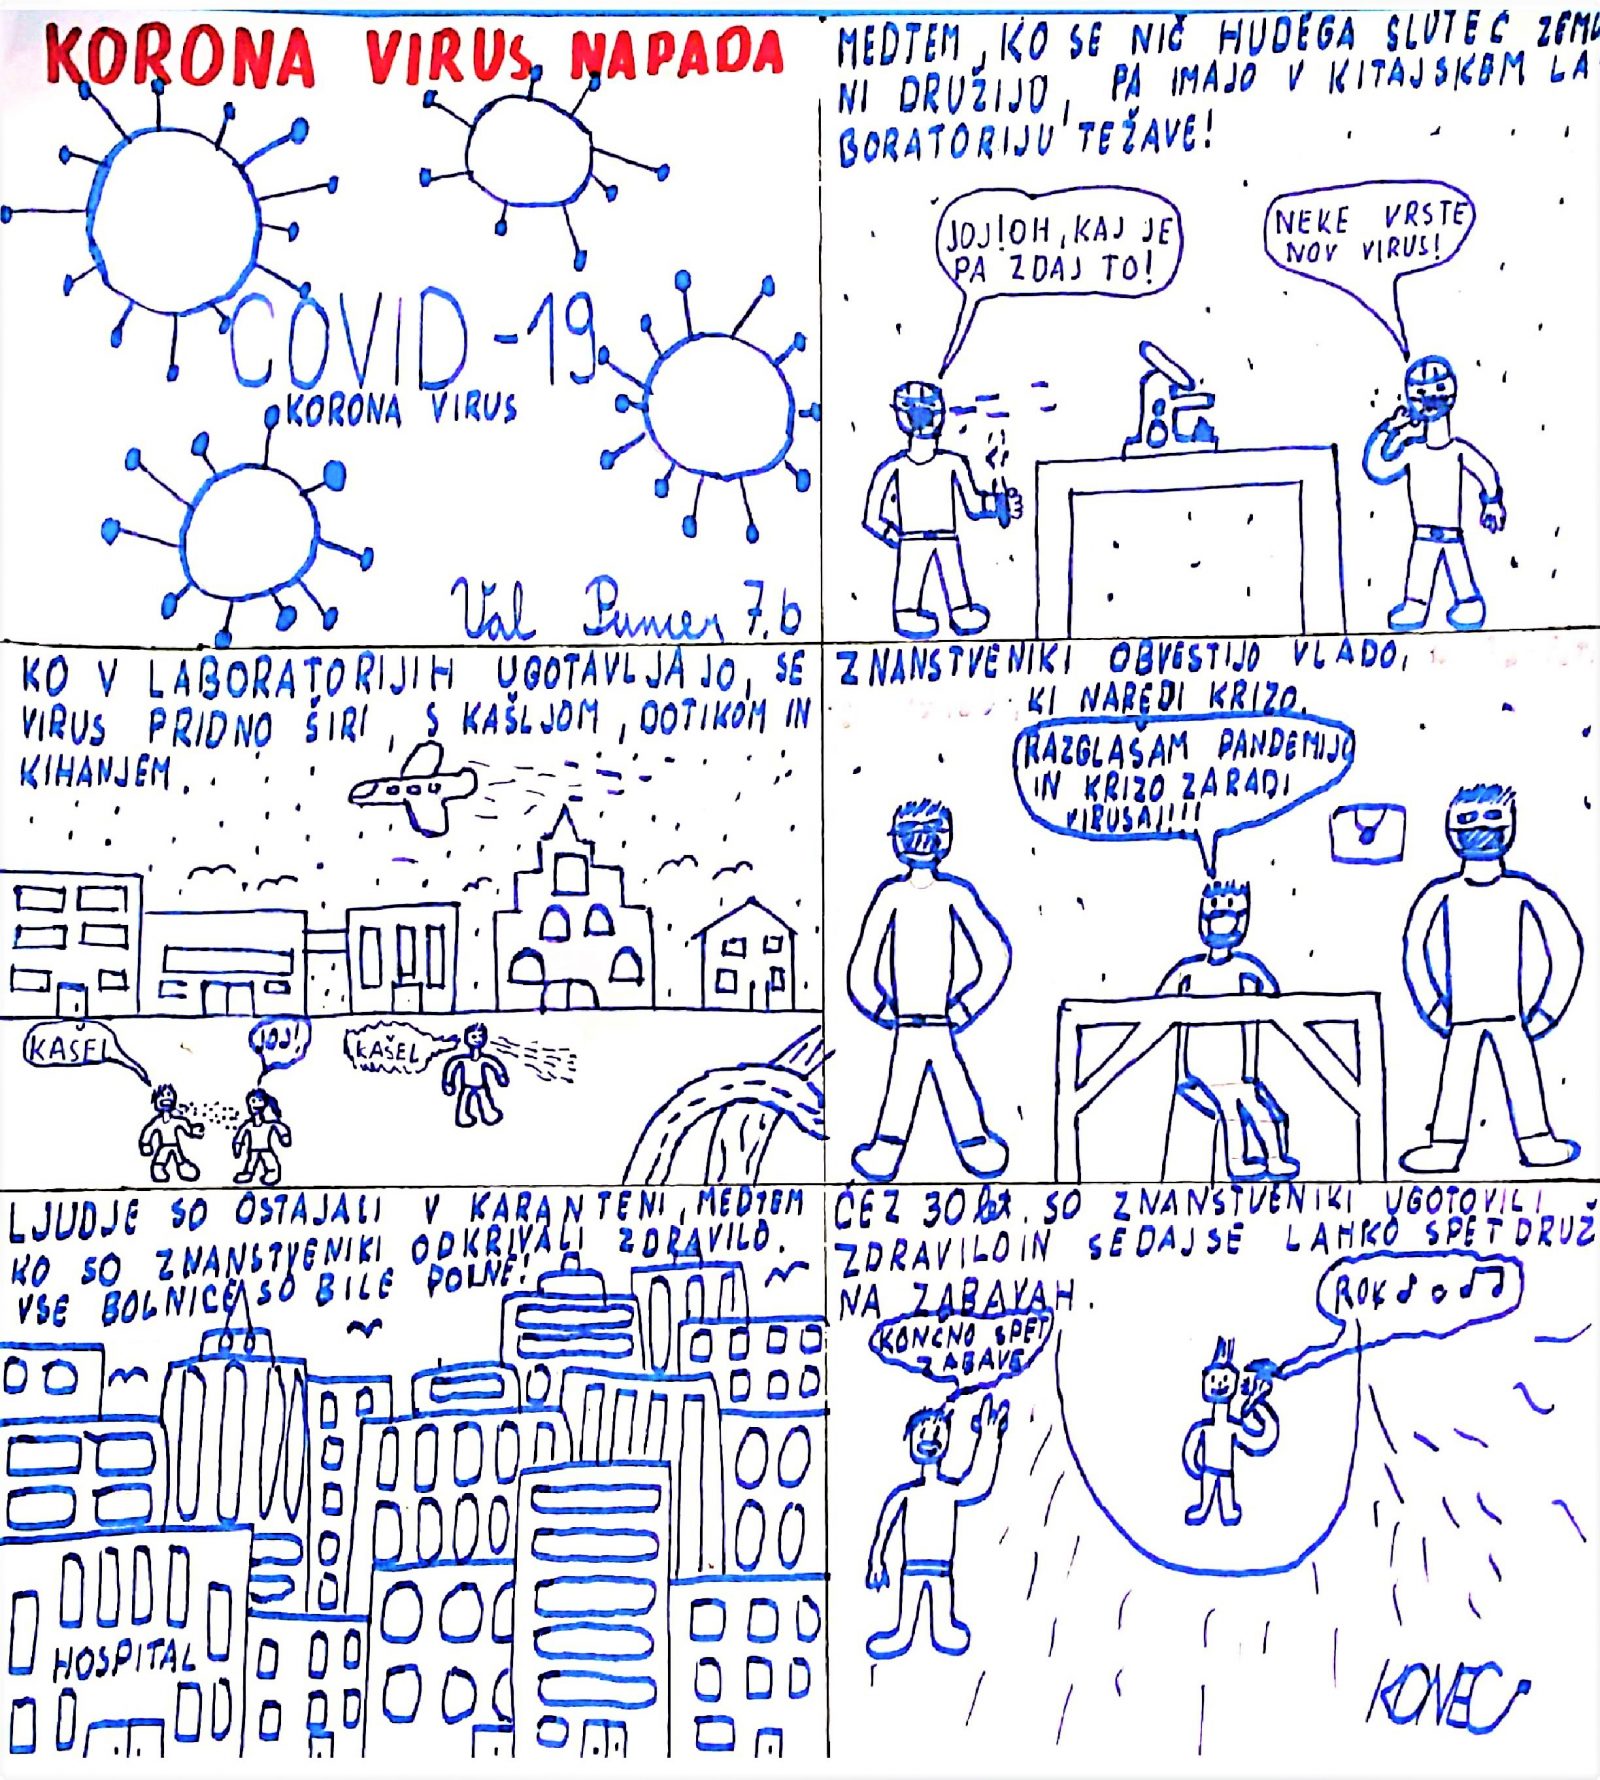 KORONA VIRUS NAPADA
COVID-19
KORONA VIRUS
Val Pumer 7.b
MEDTEM, KO SE NIČ HUDEGA SLUTEČ ZEMLJ
NI DRUŽIJO, PA IMAJO V KITAJSKEM LA
BORATORIJU TEŽAVE!
JOJ! OH, KAJ JE
PA ZDAJ TO!
NEKE VRSTE
NOV VIRUS!
KO V LABORATORIJIH UGOTAVLJAJO, SE
VIRUS PRIDNO ŠIRI, S KAŠLJOM, DOTIKOM IN
KIHANJEM.
KAŠELJ
JOJ!
KAŠELJ
ZNANSTVENIKI OBVESTIJO VLADO,
KI NAREDI KRIZO.
RAZGLAŠAM PANDEMIJO
IN KRIZO ZARADI
VIRUSA!!!!
LJUDJE SO OSTAJALI V KARANTENI, MEDTEM
KO SO ZNANSTVENIKI ODKRIVALI ZDRAVILO.
VSE BOLNICE SO BILE POLNE!
HOSPITAL
ČEZ 30 let SO ZNANSTVENIKI UGOTOVILI
ZDRAVILO IN SEDAJ SE LAHKO SPET DRUŽ
NA ZABAVAH.
KONČNO SPET
ZABAVE
ROK
KONEC